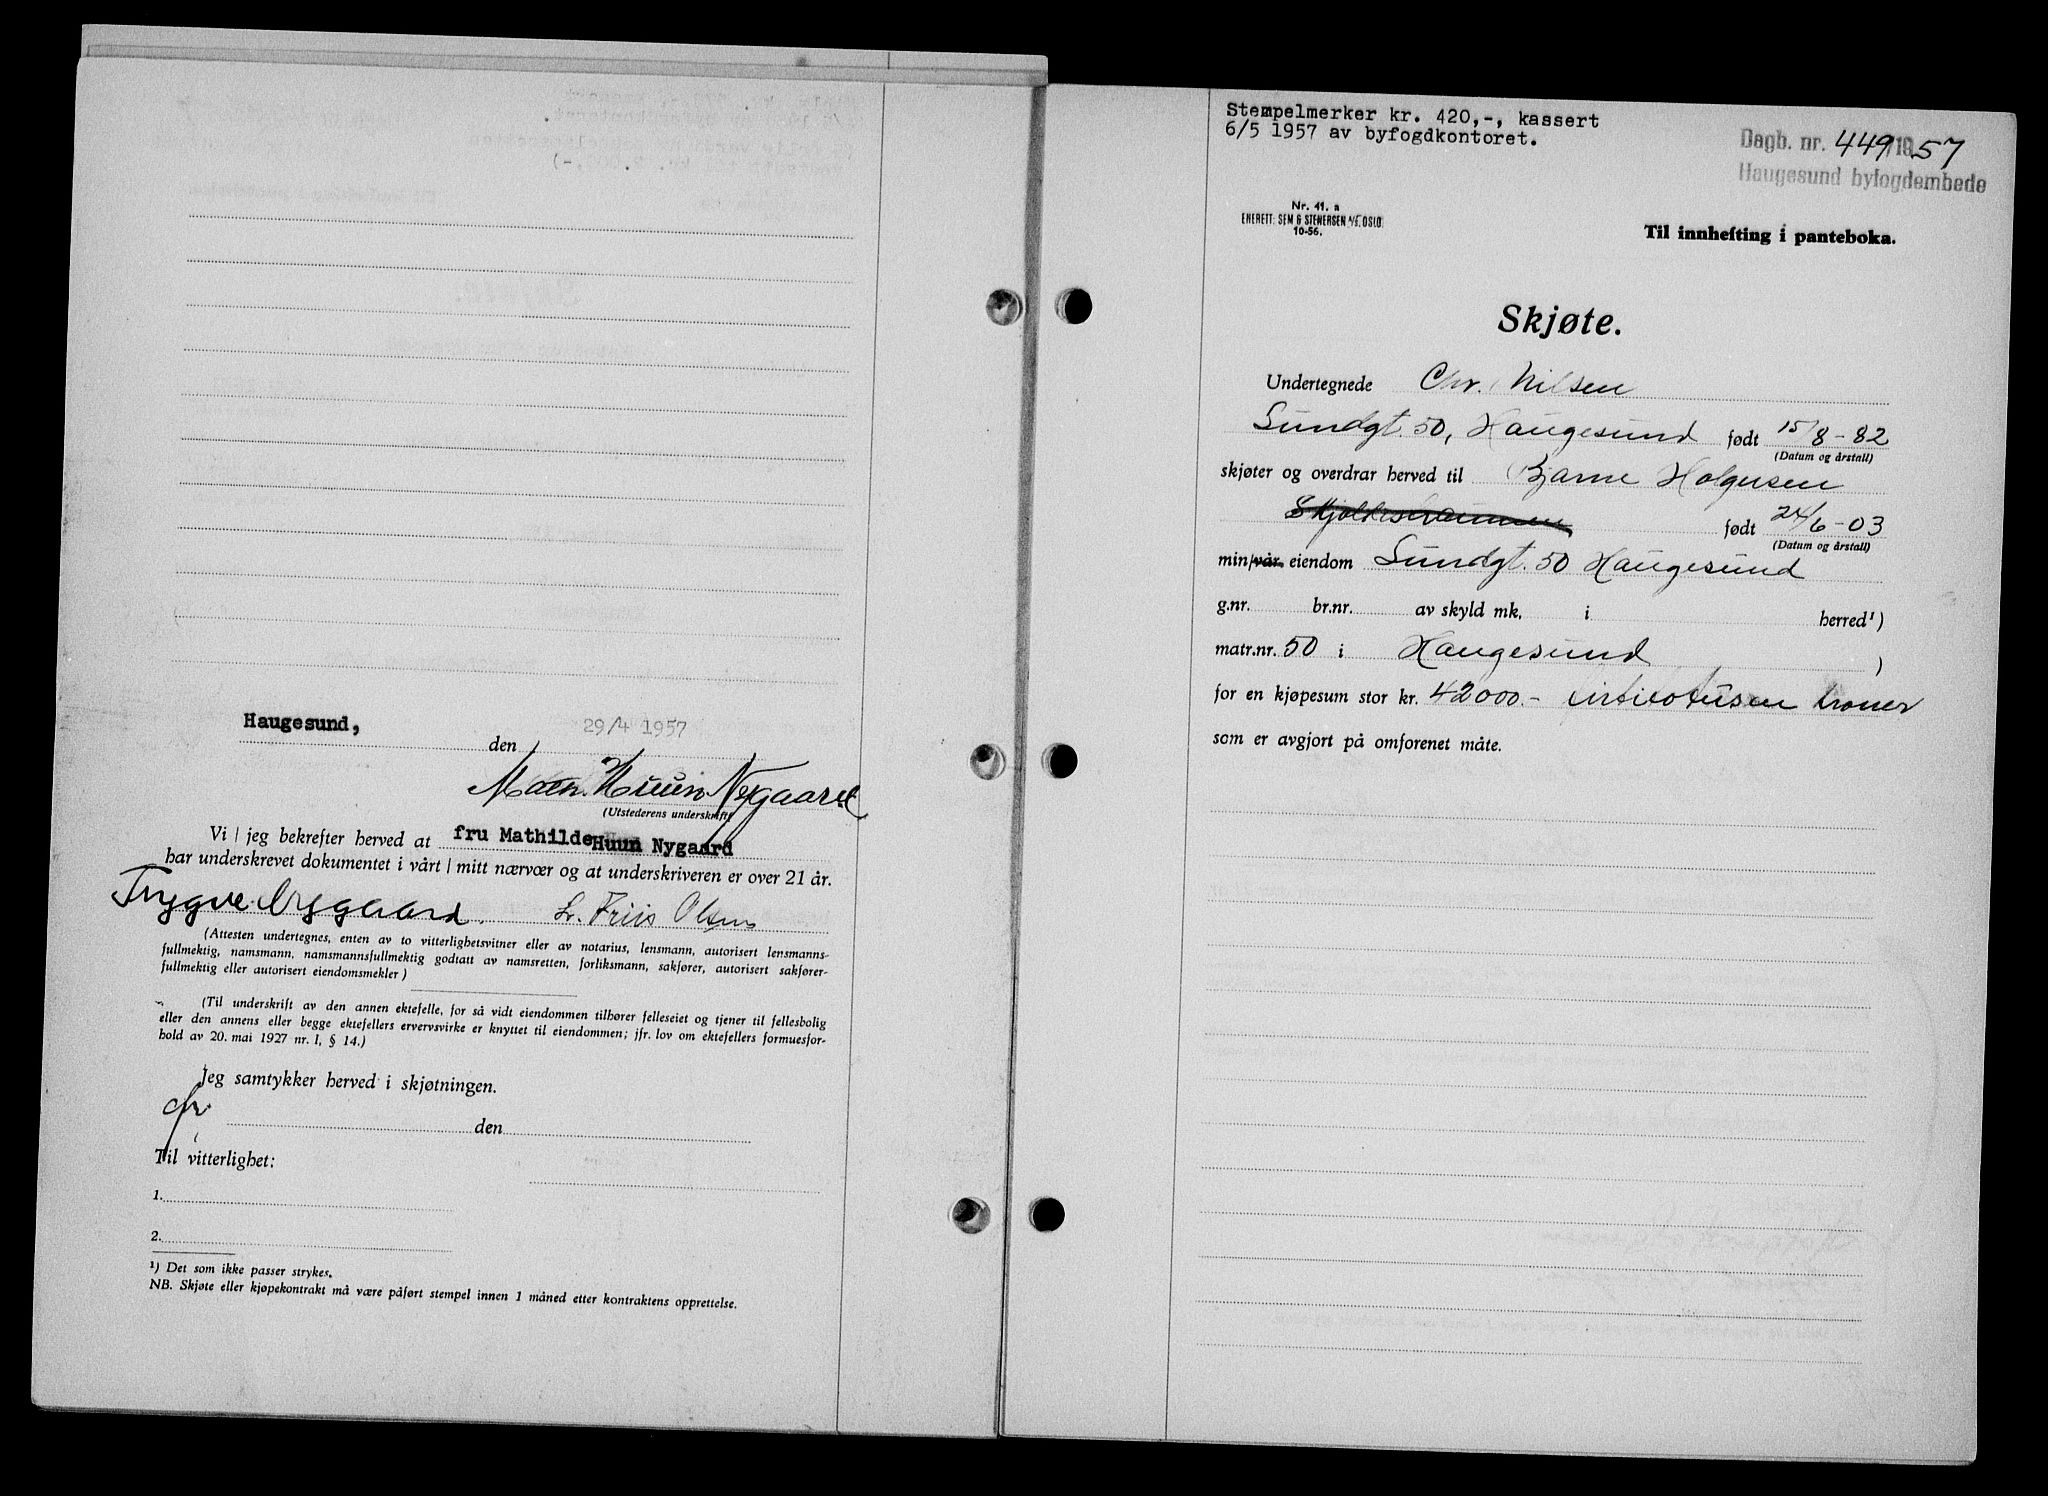 Haugesund, den 29/4 1957
Math. Huun Nygaard
(Utstederens underskrift)
Vi / jeg bekrefter herved at fru Mathilde Huun Nygaard
har underskrevet dokumentet i vårt / mitt nærvær og at underskriveren er over 21 år.
Trygve Nygaard. L. Friis Olsen
(Attesten undertegnes, enten av to vitterlighetsvitner eller av notarius, lensmann, autorisert lensmanns-
fullmektig, namsmann, namsmannsfullmektig godtatt av namsretten, forliksmann, sakfører, autorisert sakfører-
fullmektig eller autorisert eiendomsmekler)
(Til underskrift av den annen ektefelle, for så vidt eiendommen tilhører felleseiet og tjener til fellesbolig
eller den annens eller begge ektefellers ervervsvirke er knyttet til eiendommen; jfr. lov om ektefellers formuesfor-
hold av 20. mai 1927 nr. 1, § 14.)
Jeg samtykker herved i skjøtningen.
den
Til vitterlighet:
1.
2.
¹) Det som ikke passer strykes.
NB. Skjøte eller kjøpekontrakt må være påført stempel innen 1 måned etter kontraktens opprettelse.
Stempelmerker kr. 420,-, kassert
6/5 1957 av byfogdkontoret.
Dagb. nr. 449/1957
Haugesund byfogdembede
Nr. 41. a
ENERETT: SEM & STENERSEN A/S. OSLO
10-56.
Til innhefting i panteboka.
Skjøte.
Undertegnede Chr. Nilsen
Sundgt. 50, Haugesund født 15/8-82
(Datum og årstall)
skjøter og overdrar herved til Bjarne Holgersen
født 24/6-03
(Datum og årstall)
min/vår eiendom Sundgt. 50 Haugesund
g.nr. br.nr. av skyld mk. i herred¹)
matr.nr. 50 i Haugesund )
for en kjøpesum stor kr. 42000.- førtitotusen kroner
som er avgjort på omforenet måte.